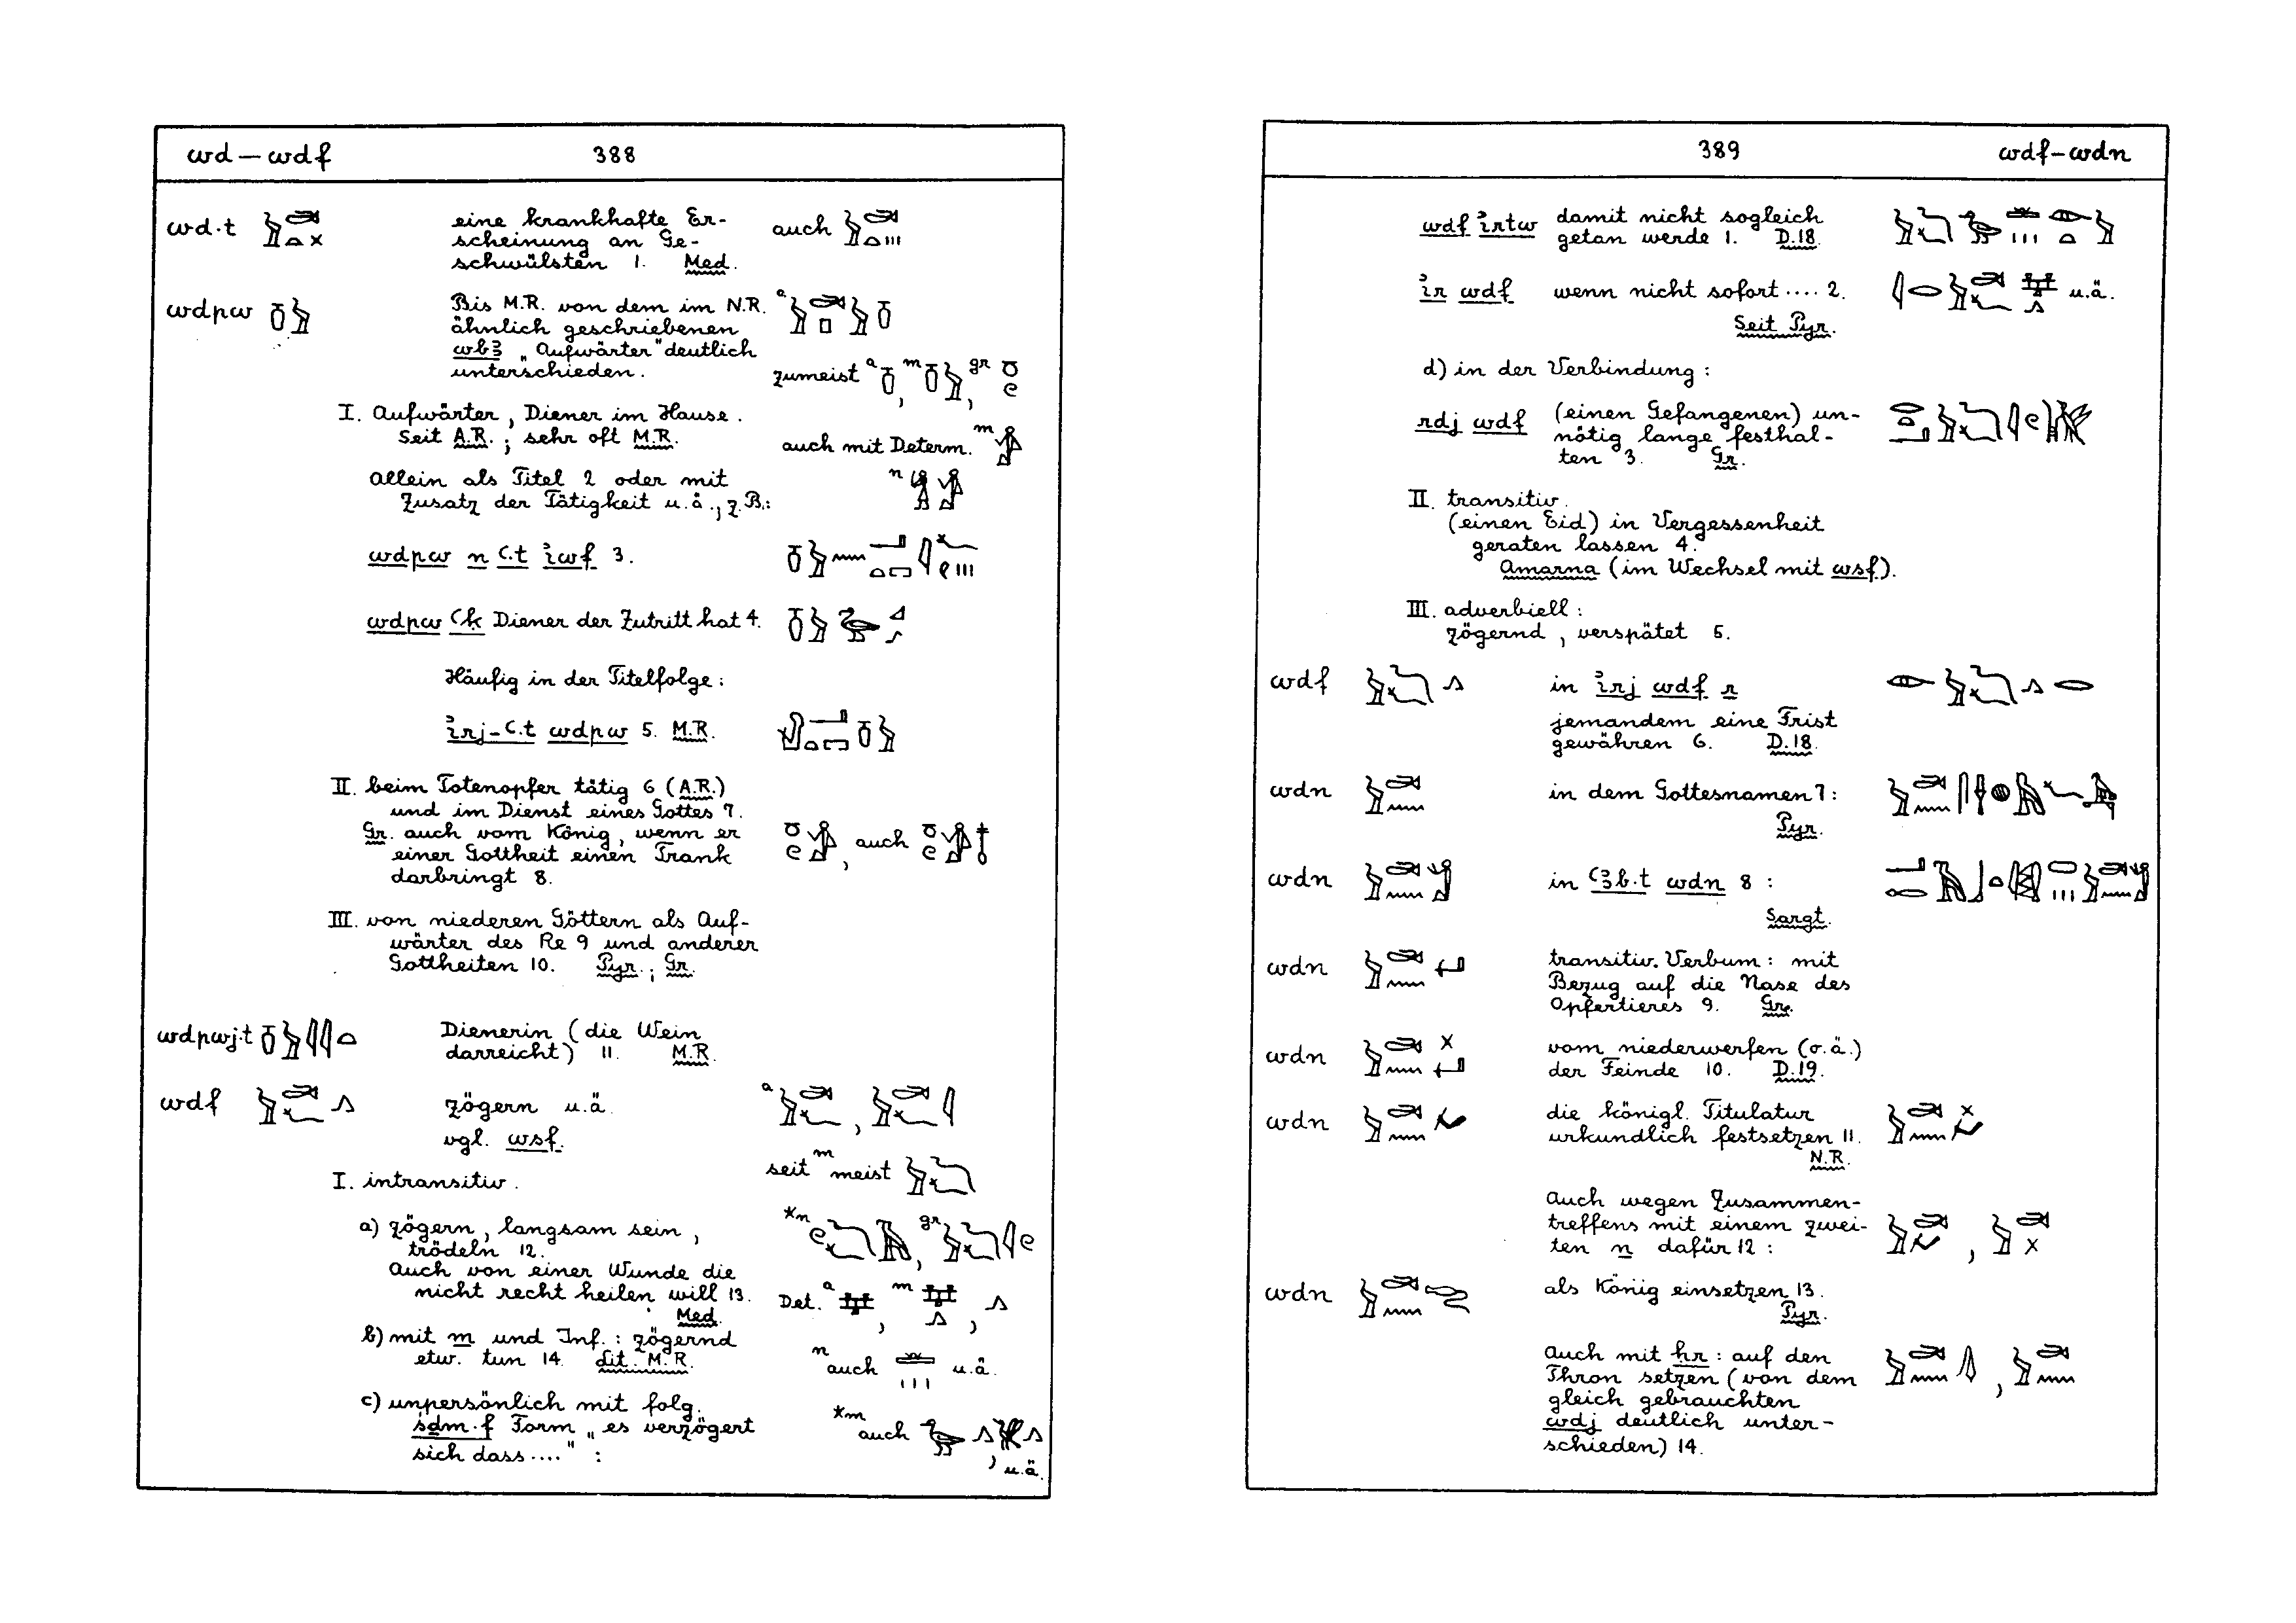 wd — wdf 388
wd.t eine krankhafte Er- auch
scheinung an Ge-
schwülsten 1. Med.
wdpw Bis M.R. von dem im N.R. a
ähnlich geschriebenen
wbꜣ „Aufwärter" deutlich
unterschieden. zumeist a , m , gr
I. Aufwärter, Diener im Hause.
Seit A.R.; sehr oft M.R. auch mit Determ. m
Allein als Titel 2 oder mit n
Zusatz der Tätigkeit u.ä., z.B.:
wdpw n ꜥ.t ỉwf 3.
wdpw ꜥḳ Diener der Zutritt hat 4.
Häufig in der Titelfolge:
ỉrj-ꜥ.t wdpw 5. M.R.
II. beim Totenopfer tätig 6 (A.R.)
und im Dienst eines Gottes 7.
Gr. auch vom König, wenn er , auch
einer Gottheit einen Trank
darbringt 8.
III. von niederen Göttern als Auf-
wärter des Re 9 und anderer
Gottheiten 10. Pyr.; Gr.
wdpwj.t Dienerin (die Wein
darreicht) 11. M.R.
wdf zögern u.ä. a ,
vgl. wsf.
I. intransitiv. seit m meist
a) zögern, langsam sein, *n , gr
trödeln 12.
Auch von einer Wunde die
nicht recht heilen will 13. Det. a , m ,
Med.
b) mit m und Inf.: zögernd
etw. tun 14. Lit. M.R. n auch u.ä.
c) unpersönlich mit folg.
śdm.f Form „es verzögert *m auch
sich dass...." : , u.ä.
389 wdf — wdn
wdf ỉrtw damit nicht sogleich
getan werde 1. D.18.
ỉr wdf wenn nicht sofort .... 2. u.ä.
Seit Pyr.
d) in der Verbindung:
rdj wdf (einen Gefangenen) un-
nötig lange festhal-
ten 3. Gr.
II. transitiv.
(einen Eid) in Vergessenheit
geraten lassen 4.
Amarna (im Wechsel mit wsf).
III. adverbiell:
zögernd, verspätet 5.
wdf in ỉrj wdf r
jemandem eine Frist
gewähren 6. D.18.
wdn in dem Gottesnamen 7:
Pyr.
wdn in ꜥꜣb.t wdn 8 :
Sargt.
wdn transitiv. Verbum: mit
Bezug auf die Nase des
Opfertieres 9. Gr.
wdn vom niederwerfen (o.ä.)
der Feinde 10. D.19.
wdn die königl. Titulatur
urkundlich festsetzen 11.
N.R.
Auch wegen Zusammen-
treffens mit einem zwei-
ten n dafür 12 : ,
wdn als König einsetzen 13.
Pyr.
Auch mit ḥr : auf den
Thron setzen (von dem ,
gleich gebrauchten
wdj deutlich unter-
schieden) 14.